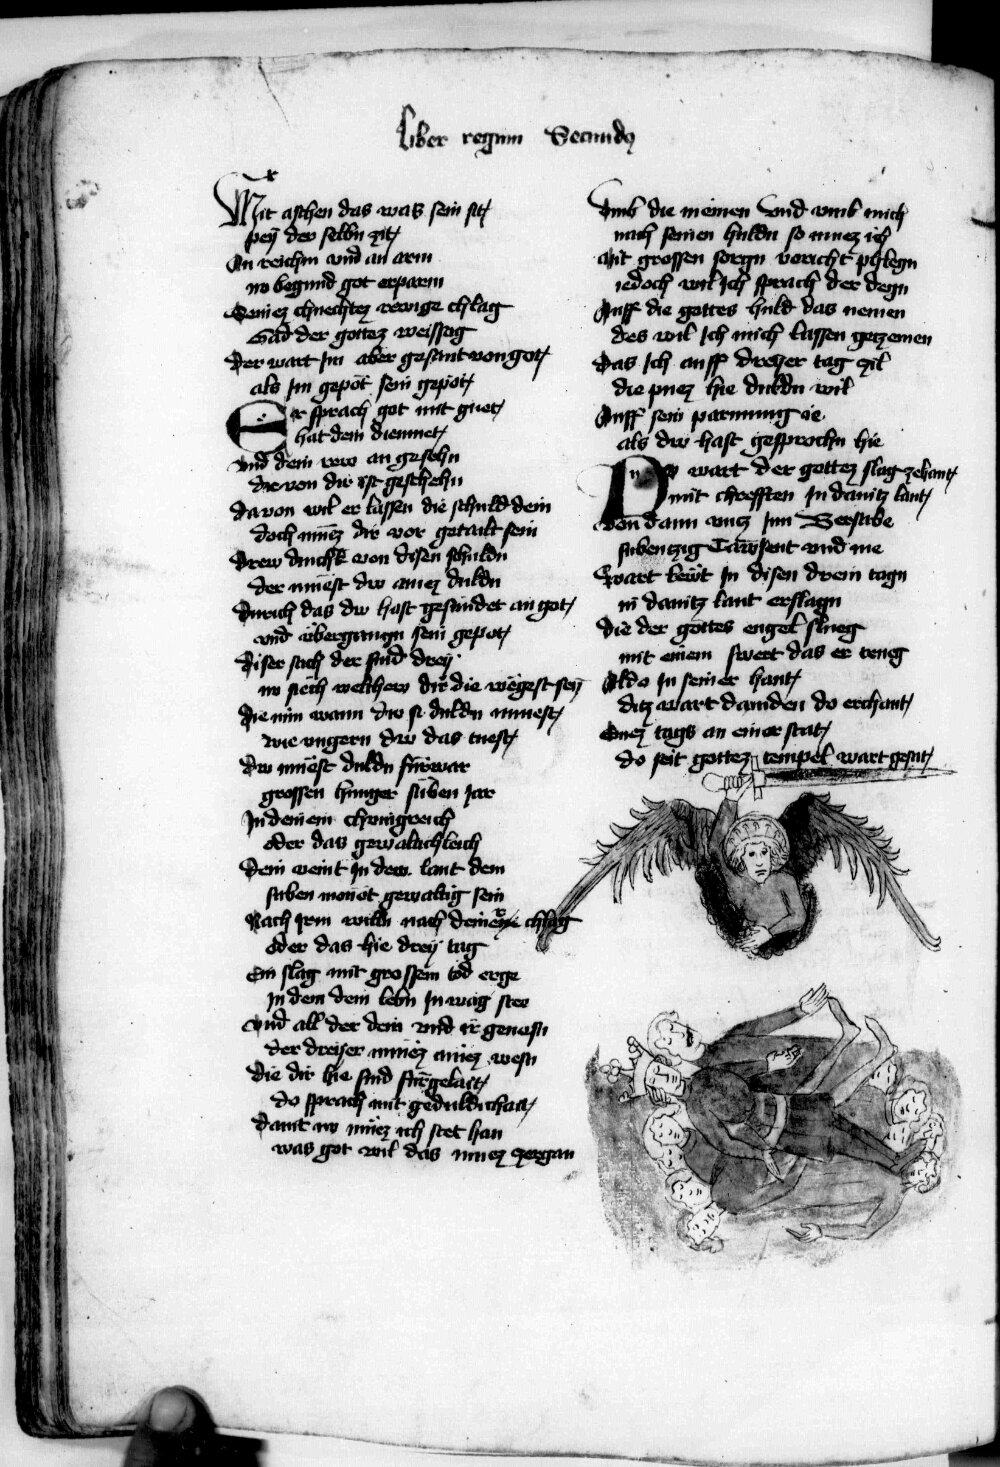 Liber regum Secundus
Mit aschen das was sein sit
pey der selbn zit
An reichm und an arm
nw begund got erparm
Seinez chnechtez rewige chlag
Gad der gottez weissag
Der wart Im aber gesant von got
als Im gepot sein gepot
Er sprach got mit guet
hat dein diemuet
Und dein rew an gesehn
die von dir ist geschehn
Davon wil er lassen die schuld dein
doch muez dir vor getailt sein
Drew dinckh von disen schuldn
der muest dw ainez duldn
Durich das dw hast gesundet an got
und ubergangn sein gepot
Diser sach der sind drey
nw siech welhew dir die wegest sey
Die nim wann dw si duldn muest
wie ungern dw das tuest
Dw muest duldn furwar
grossen hunger siben Jar
In deinem chunigreich
oder das gewaltichleich
Dein veint In dem lant dem
siben monet gewaltig sein
Nach Irm willn nach deiner chlag
oder das hie drey tag
Ein slag mit grossem tod erge
In dem dein lebn In wag stee
Und all der dein und ir genesn
der dreyer muez ainez wesn
Die dir hie sind furgelait
do sprach mit gedultichait
Davit nw muez ich stet han
was got wil das muez zergan
Umb die meinen Und umb mich
nach seinen huldn so muez ich
Mit grossen sorgn vericht phlegn
iedoch wil Ich sprach der degn
Auff die gottes huld das nemen
des wil Ich mich lassen gezemen
Das Ich auff dreyer tag zil
die puez hie duldn wil
Auff sein parmung ie
als dw hast gesprochn hie
Nu wart der gottez slag zehant
mit chrefften In davitz lant
Von dann uncz Inn Bersabe
sibentzig Tawsent und me
Wart lewt In disen drein tagn
in davitz lant erslagn
Die der gottes engel slueg
mit einem swert das er trueg
Aldo In seiner hant
ditz wart daviden do erchant
Einez tags an einer stat
do seit gottez tempel wart gesat